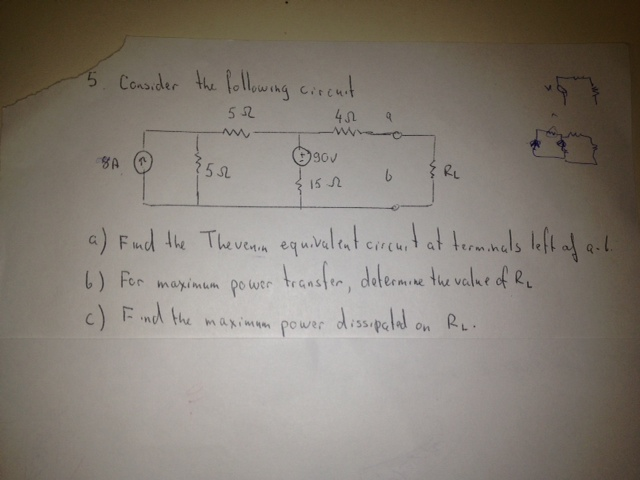 5. Consider the following circuit
5Ω 4Ω a
8A 5Ω 90V 15Ω b RL
a) Find the Thevenin equivalent circuit at terminals left of a-b.
b) For maximum power transfer, determine the value of RL
c) Find the maximum power dissipated on RL.